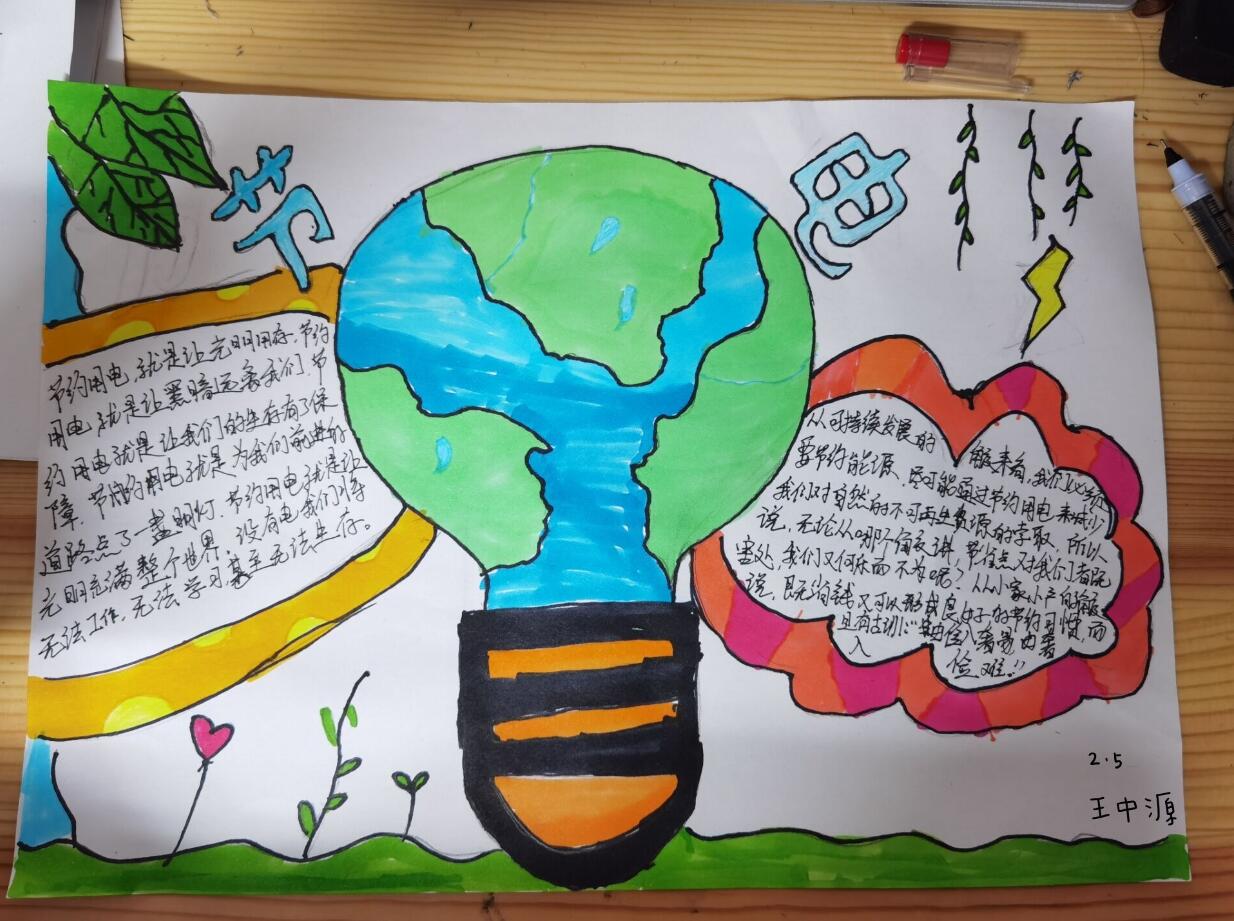 节电
节约用电,就是让光明用存,节约
用电,就是让黑暗远离我们,节
约用电就是让我们的生存有了保
障,节约用电子就是为我们前进的
道路点了一盏明灯,节约用电子就是让
光明充满整个世界,没有电我们将
无法工作,无法学习甚至无法生存。
从可持续发展的
般来看,我们必须
要节约能源,尽可能通过节约用电来减少
我们对自然的不可再生资源的索取,所以
说,无论从哪个角度讲,节省点又对我们都既
害处,我们又何乐而不为呢?从小家小户的角度
说,既省钱又可以形成良好的节约习惯,而
且有古训:“由俭入奢易由奢
入
俭难!”
2.5
王中源